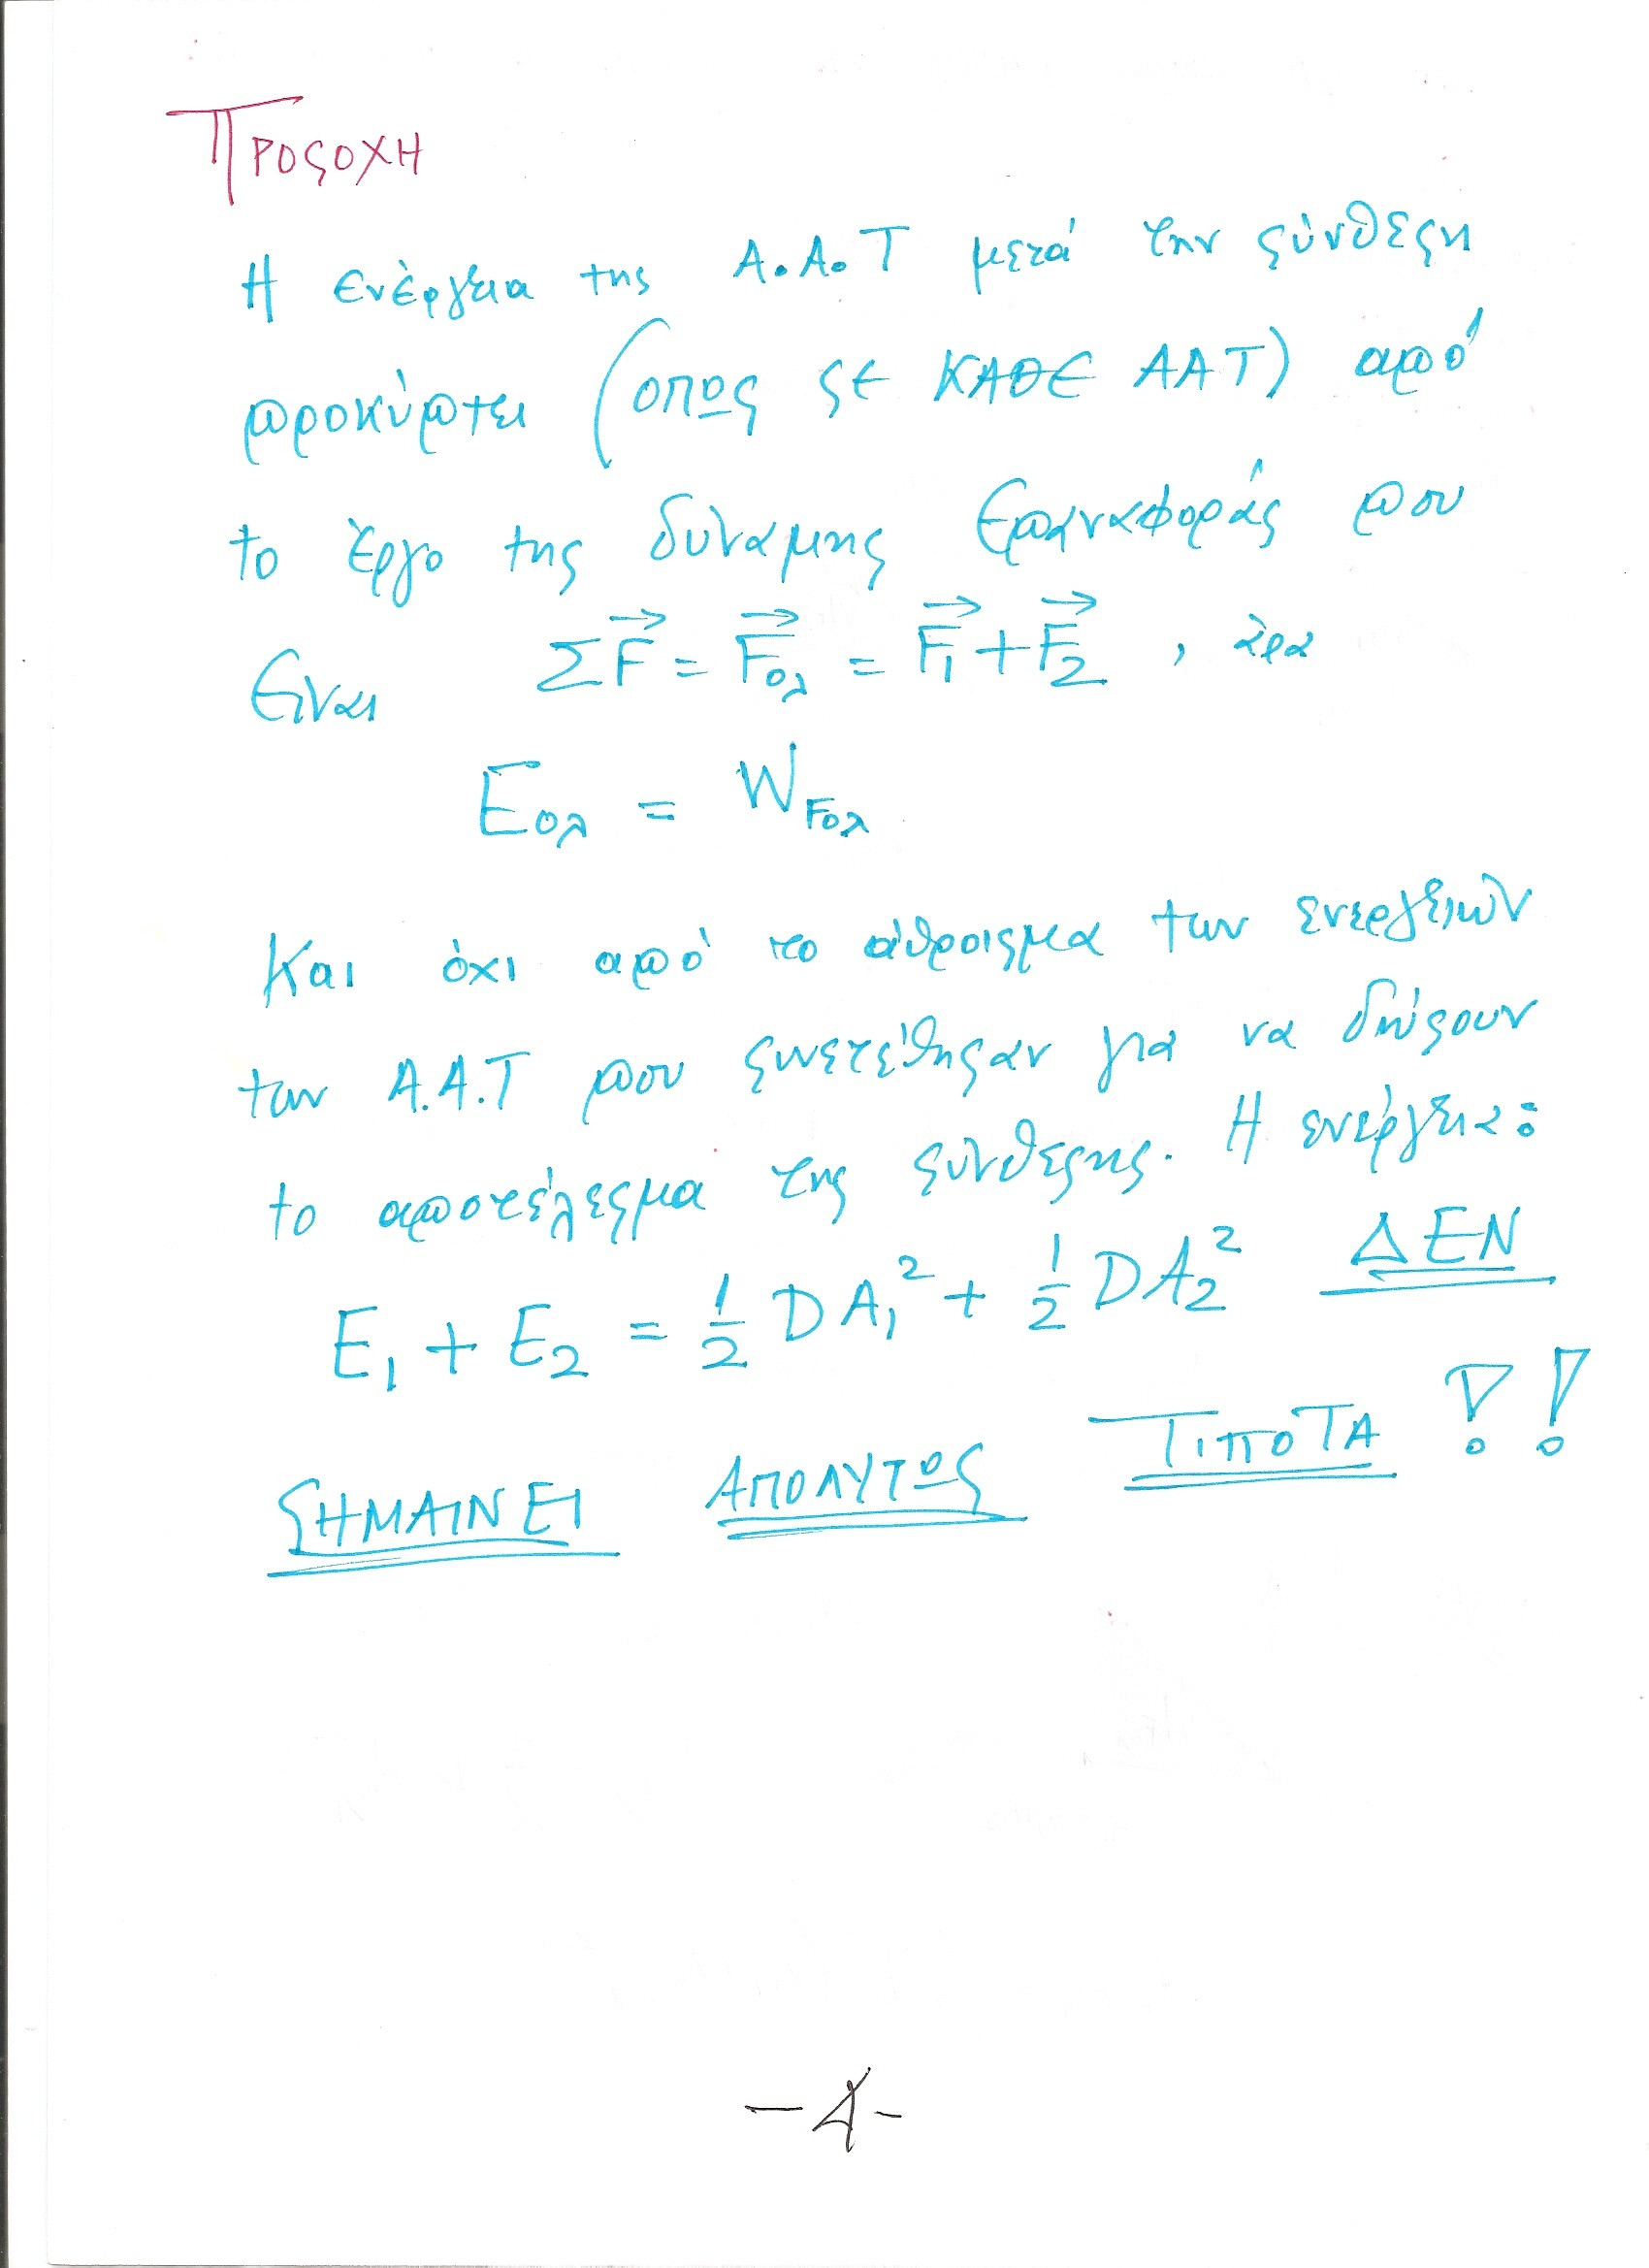 ΠΡΟΣΟΧΗ
Η ενέργεια της Α.Α.Τ μετά την σύνθεση
προκύπτει (οπως σε ΚΑΘΕ ΑΑΤ) από
το έργο της δύναμης επαναφοράς που
είναι ΣF⃗ = F⃗ολ = F⃗1 + F⃗2 , άρα
Eολ = WFολ
Και όχι από το άθροισμα των ενεργειών
των Α.Α.Τ που συνετέθησαν για να δώσουν
το αποτέλεσμα της σύνθεσης. Η ενέργεια:
E1 + E2 = 1/2 DA1² + 1/2 DA2² ΔΕΝ
ΣΗΜΑΙΝΕΙ ΑΠΟΛΥΤΩΣ ΤΙΠΟΤΑ !!
-4-